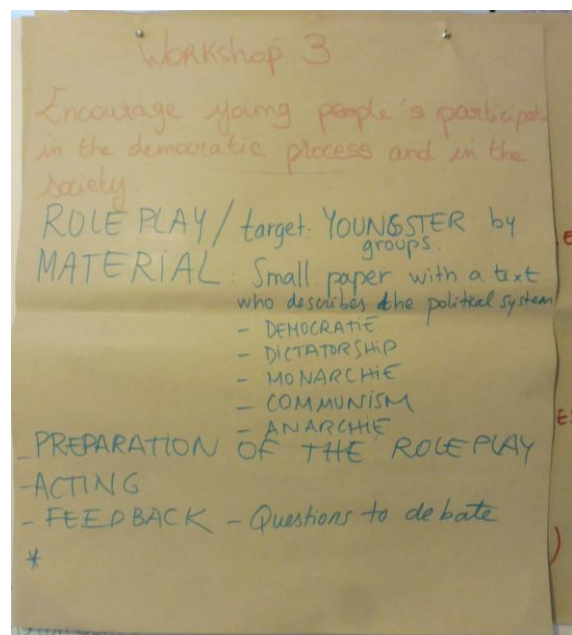 Workshop 3
Encourage young people's participat
in the democratic process and in the
society.
ROLE PLAY / target: YOUNGSTER by
groups.
MATERIAL: Small paper with a text
who describes the political system
- DEMOCRATIE
- DICTATORSHIP
- MONARCHIE
- COMMUNISM
- ANARCHIE
- PREPARATION OF THE ROLE PLAY
- ACTING
- FEEDBACK - Questions to debate
*